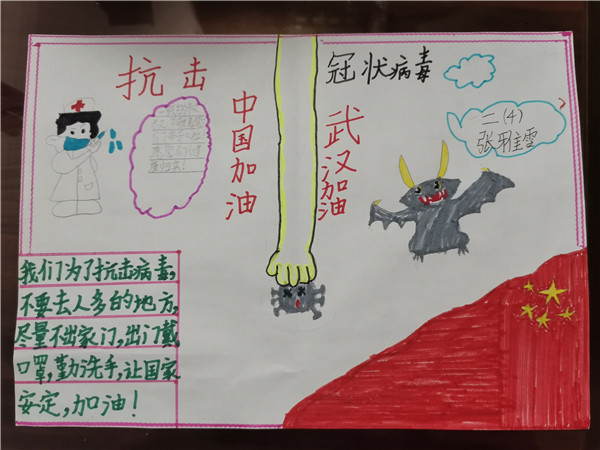 抗击
冠状病毒
中国加油
武汉加油
二(4)
张雅雪
我们为了抗击病毒,
不要去人多的地方,
尽量不出家门,出门戴
口罩,勤洗手,让国家
安定,加油!